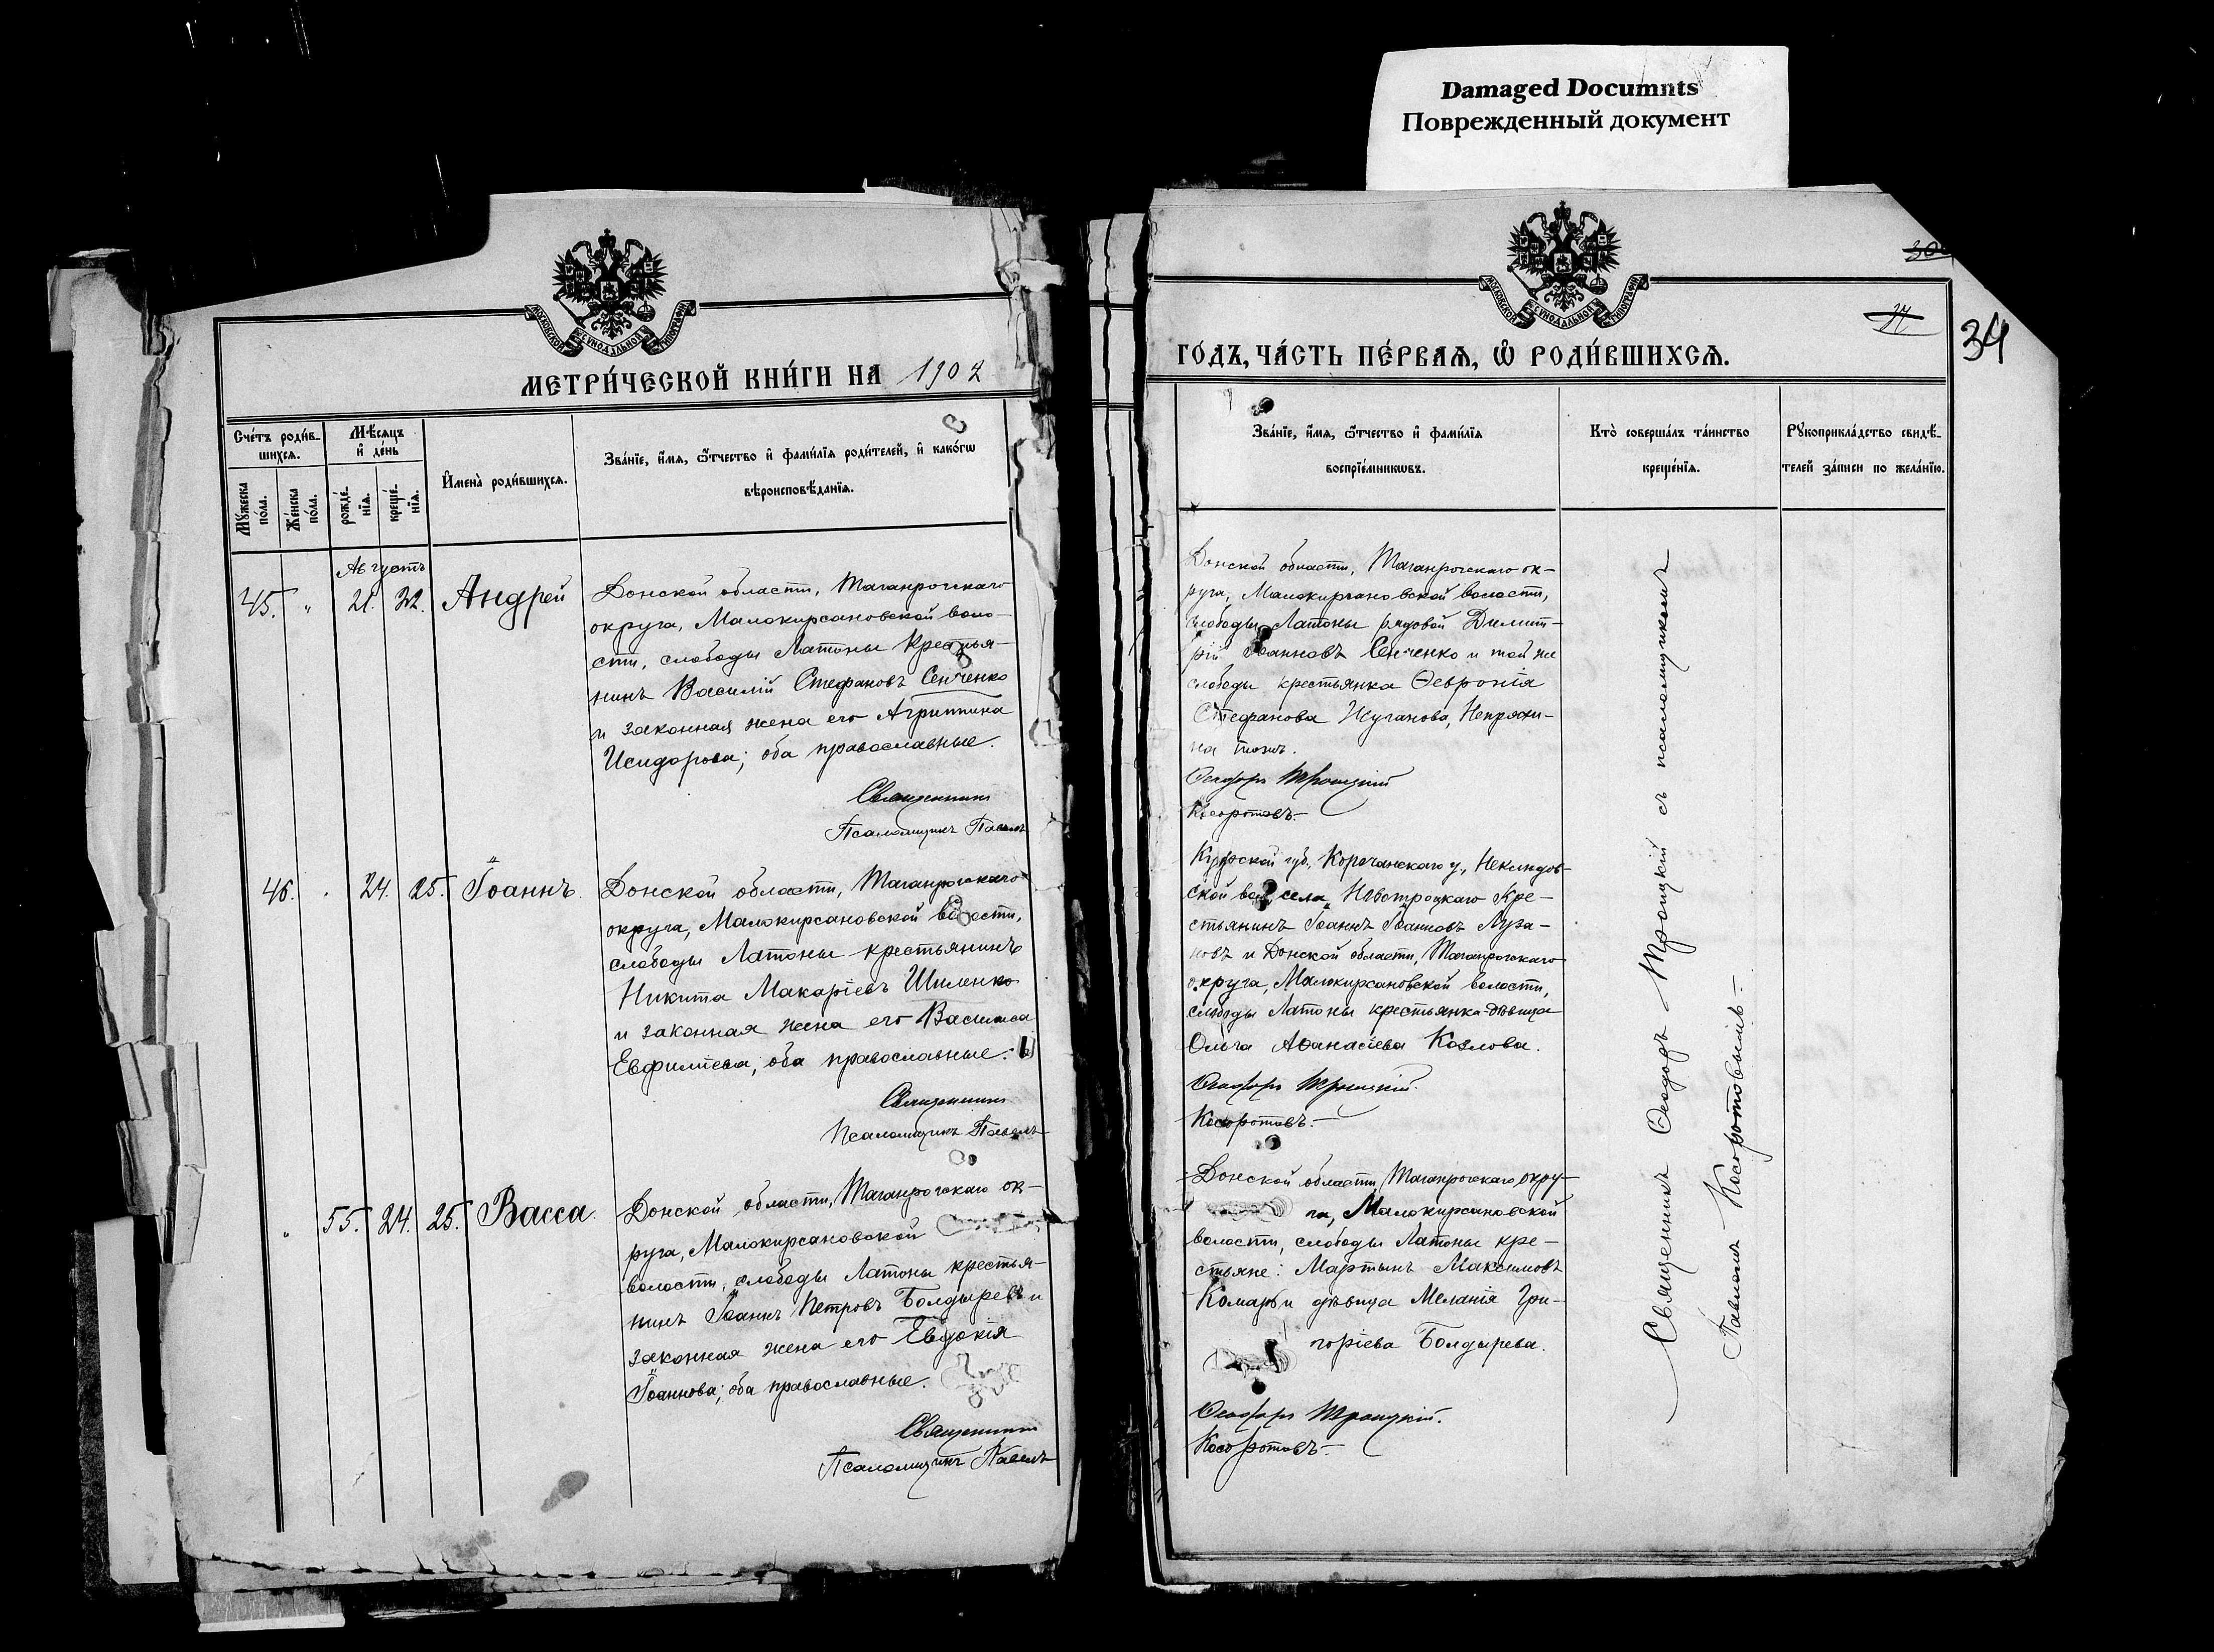 Damaged Documnts
Поврежденный документ
МОСКОВСКОЙ СѴНОДАЛЬНОЙ ТИПОГРАФІИ
МЕТРИ́ЧЕСКОЙ КНИ́ГИ НА 1902
Сче́тъ роди́в-
шихсѧ.
Мѣ́сѧцъ
и҆ де́нь
Мꙋ́жеска
по́ла.
Же́нска
по́ла.
рожде́-
нїѧ.
креще́-
нїѧ.
И҆мена̀ роди́вшихсѧ.
Зва́нїе, и҆́мѧ, ѻ҆́тчество и҆ фами́лїѧ роди́телей, и҆ како́гѡ
вѣроисповѣ́данїѧ.
Августъ
45. " 21. 22. Андрей
Донской области, Таганрогскаго
округа, Малокирсановской воло-
сти, слободы Латоны крестья-
нинъ Василій Стефановъ Сенченко
и законная жена его Агриппина
Исидорова; оба православные.
Священникъ
Псаломщикъ Павелъ
46. 24. 25. Іоаннъ.
Донской области, Таганрогскаго
округа, Малокирсановской волости,
слободы Латоны крестьянинъ
Никита Макаріевъ Шиленко
и законная жена его Василиса
Евфиміева, оба православные.
Священникъ
Псаломщикъ Павелъ
" 55. 24. 25. Васса.
Донской области, Таганрогскаго ок-
руга, Малокирсановской
волости, слободы Латоны крестья-
нинъ Іоаннъ Петровъ Болдыревъ и
законная жена его Евдокія
Іоаннова; оба православные.
Священникъ
Псаломщикъ Павелъ
МОСКОВСКОЙ СѴНОДАЛЬНОЙ ТИПОГРАФІИ
34
ГО́ДЪ, ЧА́СТЬ ПЕ́РВАѦ, Ѡ҆ РОДИ́ВШИХСѦ.
Зва́нїе, и҆́мѧ, ѻ҆́тчество и҆ фами́лїѧ
воспрїе́мникѡвъ.
Кто̀ соверша́лъ та́инство
креще́нїѧ.
Рꙋкоприкла́дство свидѣ́-
телей за́писи по жела́нїю.
Донской области, Таганрогскаго ок-
руга, Малокирсановской волости,
слободы Латоны рядовой Димит-
рій Іоанновъ Сенченко и той же
слободы крестьянка Ѳевронія
Стефанова Жуганова, Непряхи-
на тожъ.
Ѳеодоръ Троицкій
Косоротовъ.
Курской губ., Корочанскаго у., Неклюдов-
ской вол. села Новотроицкаго кре-
стьянинъ Іоаннъ Іоанновъ Луза-
новъ и Донской области, Таганрогскаго
округа, Малокирсановской волости,
слободы Латоны крестьянка-дѣвица
Ольга Аѳанасіева Козлова.
Ѳеодоръ Троицкій.
Косоротовъ.
Донской области Таганрогскаго окру-
га, Малокирсановской
волости, слободы Латоны кре-
стьяне: Мартынъ Максимовъ
Комаръ и дѣвица Меланія Гри-
горіева Болдырева.
Ѳеодоръ Троицкій.
Косоротовъ.
Священникъ Ѳеодоръ Троицкій съ псаломщикомъ
Павломъ Косоротовымъ.